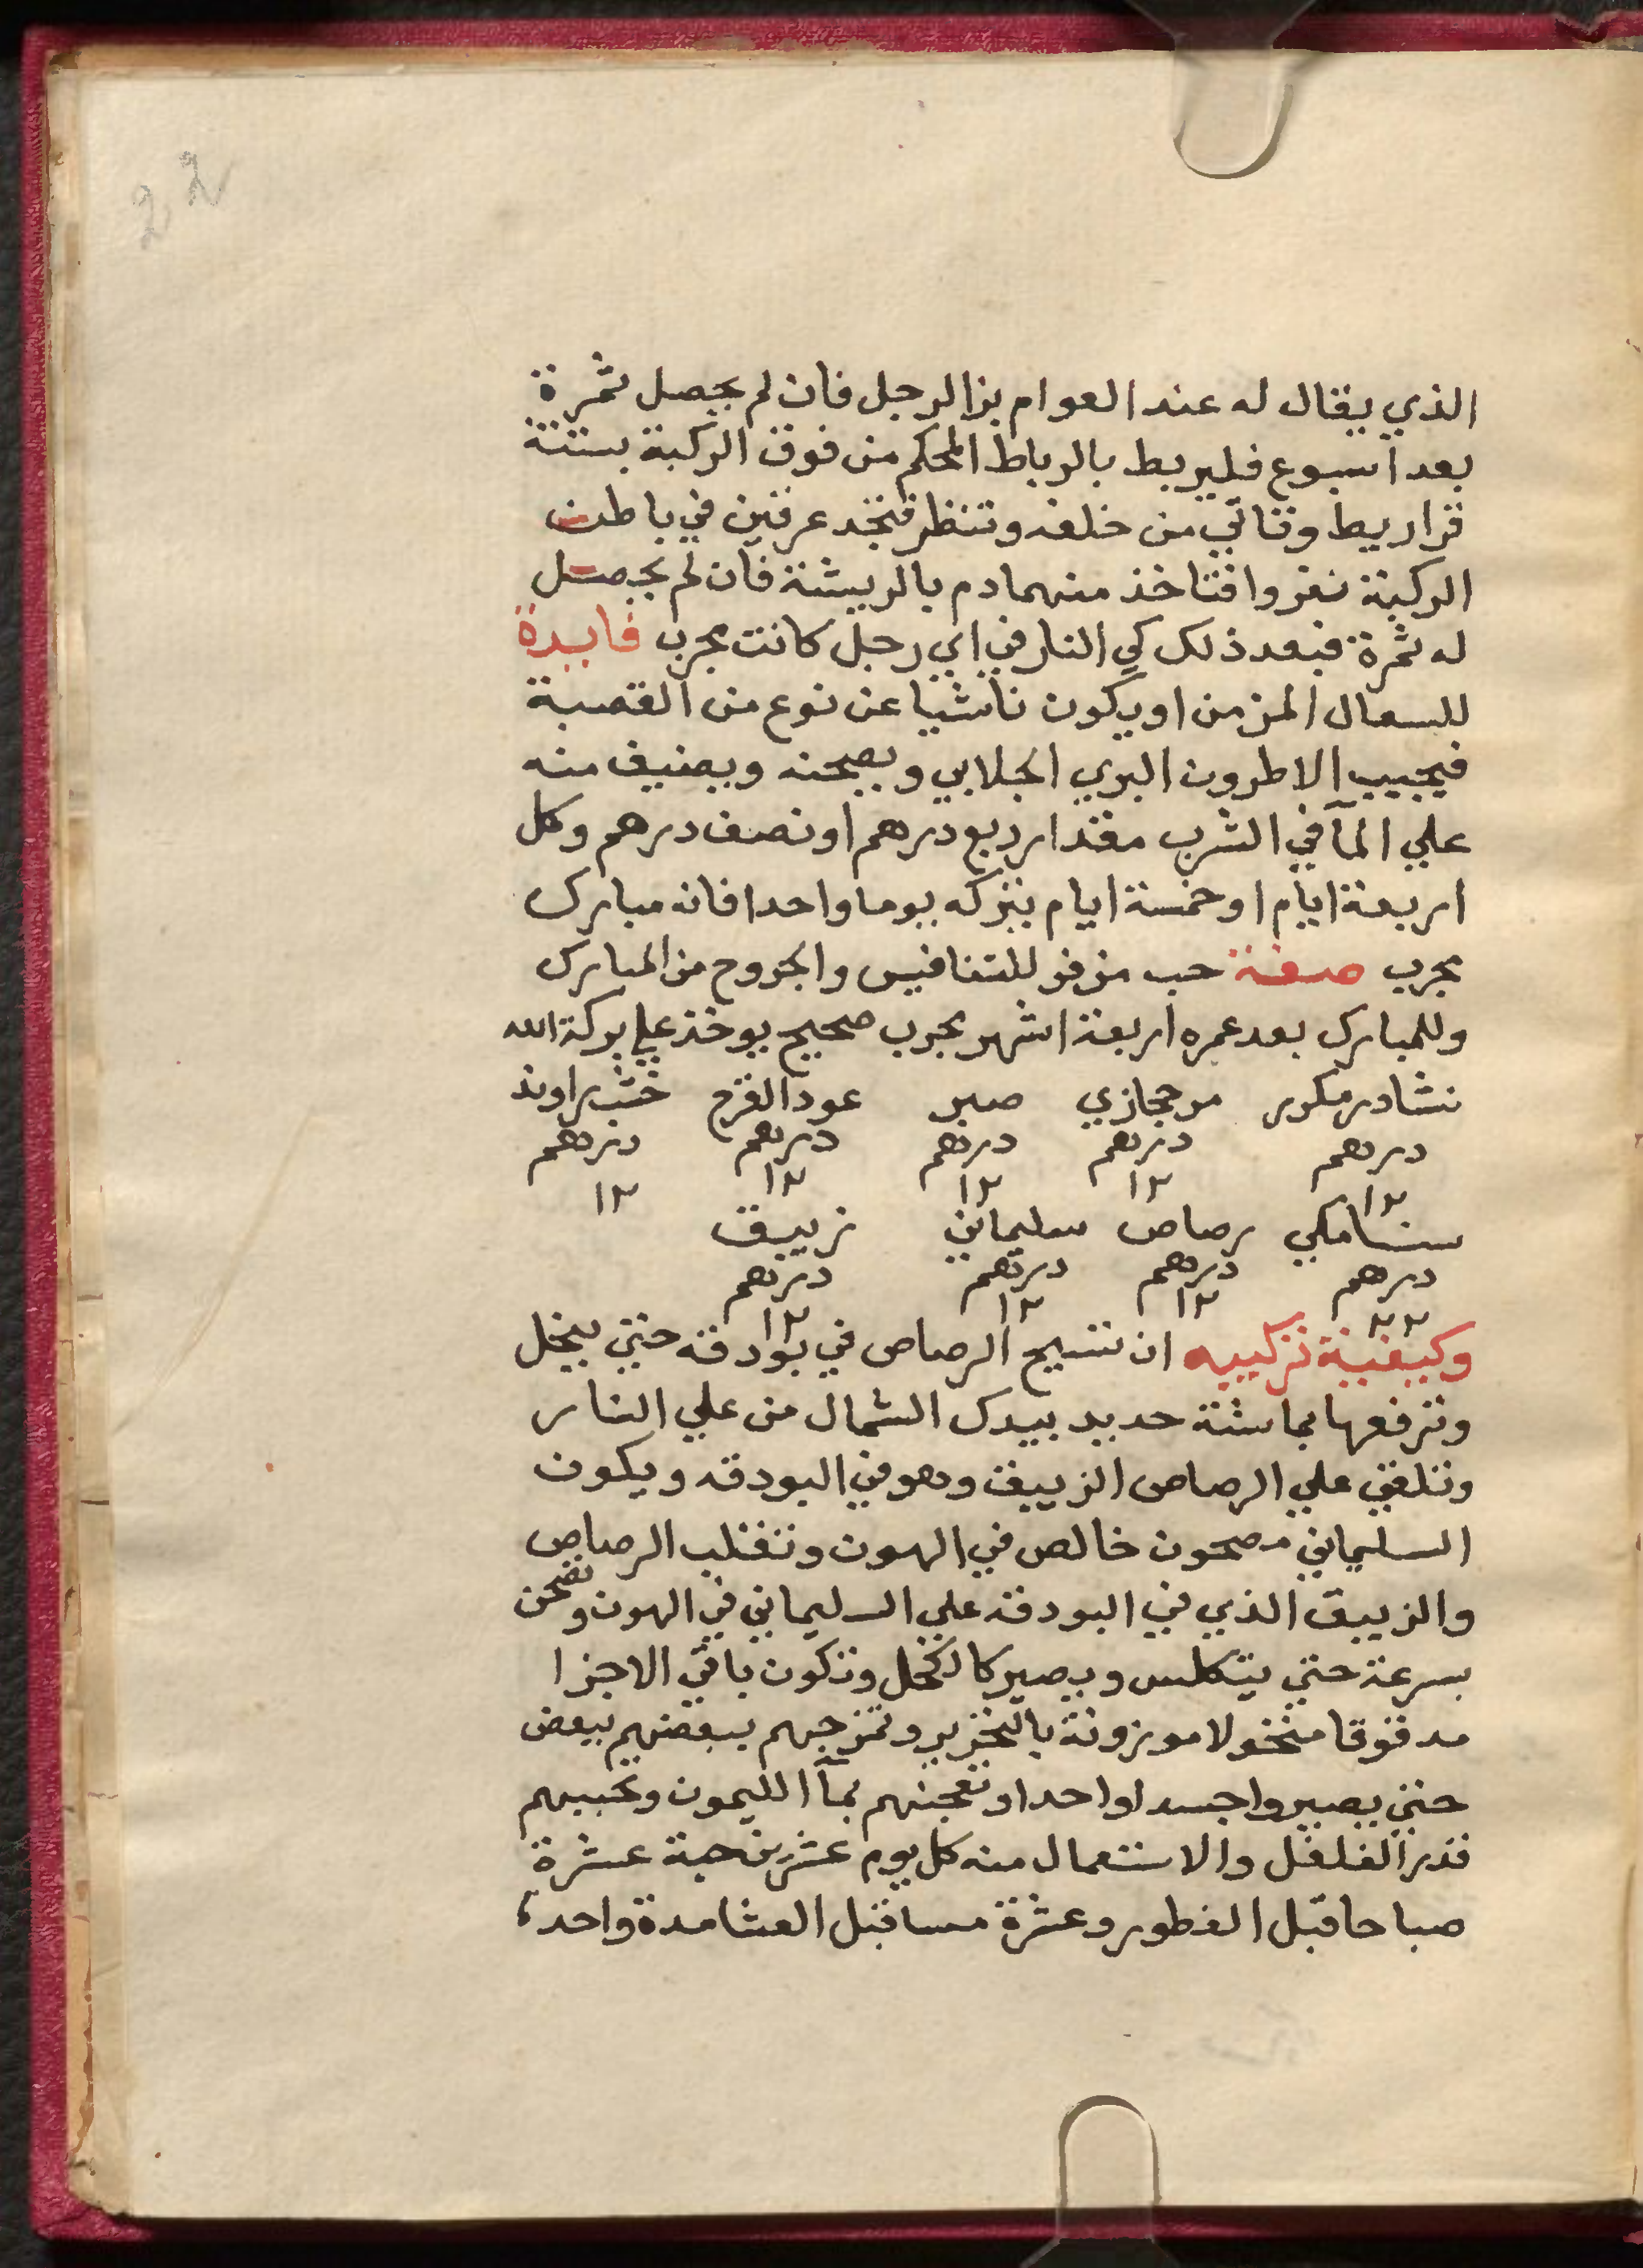 22
الذي يقال له عند العوام بزالرجل فان لم يحصل ثمرة
بعد اسبوع فليربط بالرباط المحكم من فوق الركبة بستة
قراريط وتاتي من خلفه وتنظر فتجد عرقين في باطن
الركبة نفروا فتاخذ منهما دم بالريشة فان لم يحصل
له ثمرة فبعد ذلك كي النار في اي رجل كانت مجرب فايدة
للسعال المزمن او يكون ناشيا عن نوع من القصبة
فيجيب الاطرون البري الجلابي ويصحنه ويضيف منه
علي المآ في الشرب مقدار ربع درهم او نصف درهم وكل
اربعة ايام او خمسة ايام يتركه يوما واحدا فانه مبارك
مجرب صفة حب مزفو للتنافيس والجروح من المبارك
وللمبارك بعد عمره اربعة اشهر مجرب صحيح يوخذ علي بركة الله
نشادر مكرر مر حجازي صبر عود القرح خشب راوند
درهم درهم درهم درهم درهم
١٢ ١٢ ١٢ ١٢ ١٢
سنامكي رصاص سليماني زيبق
درهم درهم درهم درهم
٢٢ ١٢ ١٢ ١٢
وكيفية تركيبه ان تسيح الرصاص في بودقه حتي ينحل
وترفعها بماشة حديد بيدك الشمال من علي النار
وتلقي علي الرصاص الزيبق وهو في البودقه ويكون
السليماني مصحون خالص في الهون وتقلب الرصاص
والزيبق الذي في البودقه علي السليماني في الهون وتصحن
بسرعة حتي يتكلس ويصير كالكحل وتكون باقي الاجزا
مدقوقا منخولا موزونة بالتحرير وتمزجهم ببعضهم بعض
حتي يصيروا جسدا واحدا وتعجنهم بمآ الليمون وتحببهم
قدر الفلفل والاستعمال منه كل يوم عشرين حبة عشرة
صباحا قبل الفطور وعشرة مسا قبل العشا مدة واحد